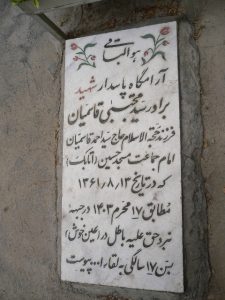 هو الباقی
آرامگاه پاسدار شهید
برادر سید مجتبی قاسمیان
فرزند حجة الاسلام حاج سید احمد قاسمیان
امام جماعت مسجد حسین (اتابک)
که در تاریخ ۱۳ـ۸ـ۱۳۶۱
مطابق ۱۷ محرم ۱۴۰۳ در جبهه
نبرد حق علیه باطل در (عین خوش)
بسن ۱۷ سالگی به لقاءا... پیوست